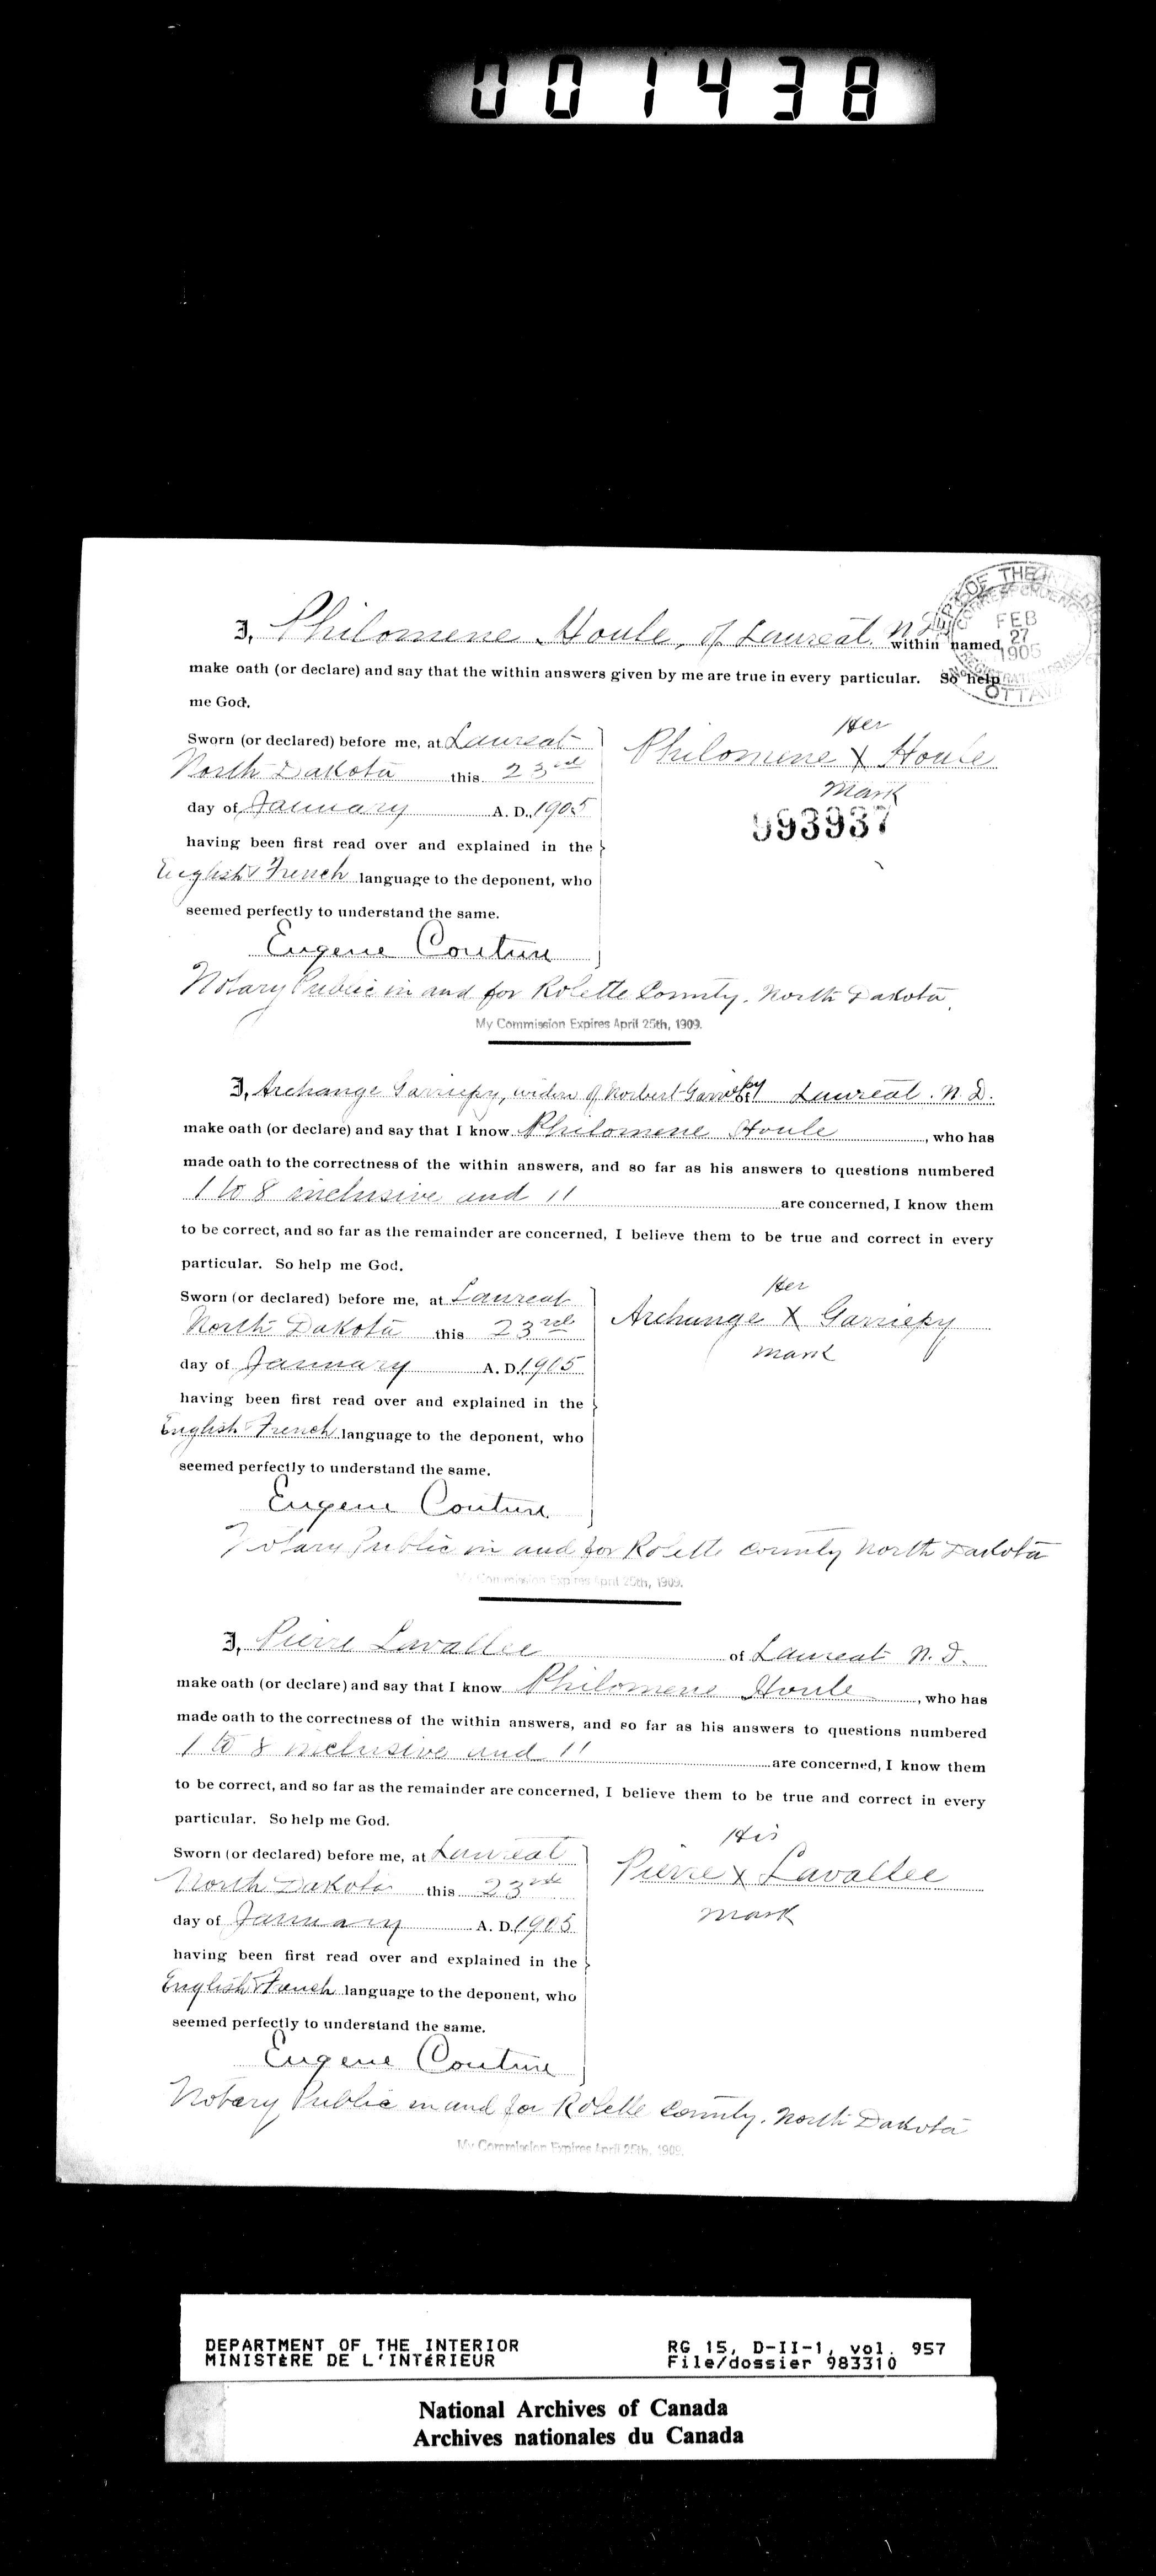 001438
DEPT OF THE INTERIOR
CORRESPONDENCE
FEB
27
1905
OTTAWA
I, Philomene Houle, of Laureat N.D. within named,
make oath (or declare) and say that the within answers given by me are true in every particular. So help
me God.
Sworn (or declared) before me, at Laureat
North Dakota this 23rd
day of January A. D., 1905
having been first read over and explained in the
English & French language to the deponent, who
seemed perfectly to understand the same.
Her
Philomene X Houle
Mark
993937
Eugene Couture
Notary Public in and for Rolette County. North Dakota.
My Commission Expires April 25th, 1909.
I, Archange Garriepy, widow of Norbert Garriepy of Laureat. N. D.
make oath (or declare) and say that I know Philomene Houle, who has
made oath to the correctness of the within answers, and so far as his answers to questions numbered
1 to 8 inclusive and 11 are concerned, I know them
to be correct, and so far as the remainder are concerned, I believe them to be true and correct in every
particular. So help me God.
Sworn (or declared) before me, at Laureat
North Dakota this 23rd
day of January A. D. 1905
having been first read over and explained in the
English & French language to the deponent, who
seemed perfectly to understand the same.
Her
Archange X Garriepy
mark
Eugene Couture
Notary Public in and for Rolette County North Dakota
My Commission Expires April 25th, 1909.
I, Pierre Lavallee of Laureat N. D.
make oath (or declare) and say that I know Philomene Houle, who has
made oath to the correctness of the within answers, and so far as his answers to questions numbered
1 to 8 inclusive and 11 are concerned, I know them
to be correct, and so far as the remainder are concerned, I believe them to be true and correct in every
particular. So help me God.
Sworn (or declared) before me, at Laureat
North Dakota this 23rd
day of January A. D. 1905
having been first read over and explained in the
English & French language to the deponent, who
seemed perfectly to understand the same.
His
Pierre X Lavallee
mark
Eugene Couture
Notary Public in and for Rolette County. North Dakota
My Commission Expires April 25th, 1909.
DEPARTMENT OF THE INTERIOR
MINISTÈRE DE L'INTÉRIEUR
RG 15, D-II-1, vol. 957
File/dossier 983310
National Archives of Canada
Archives nationales du Canada